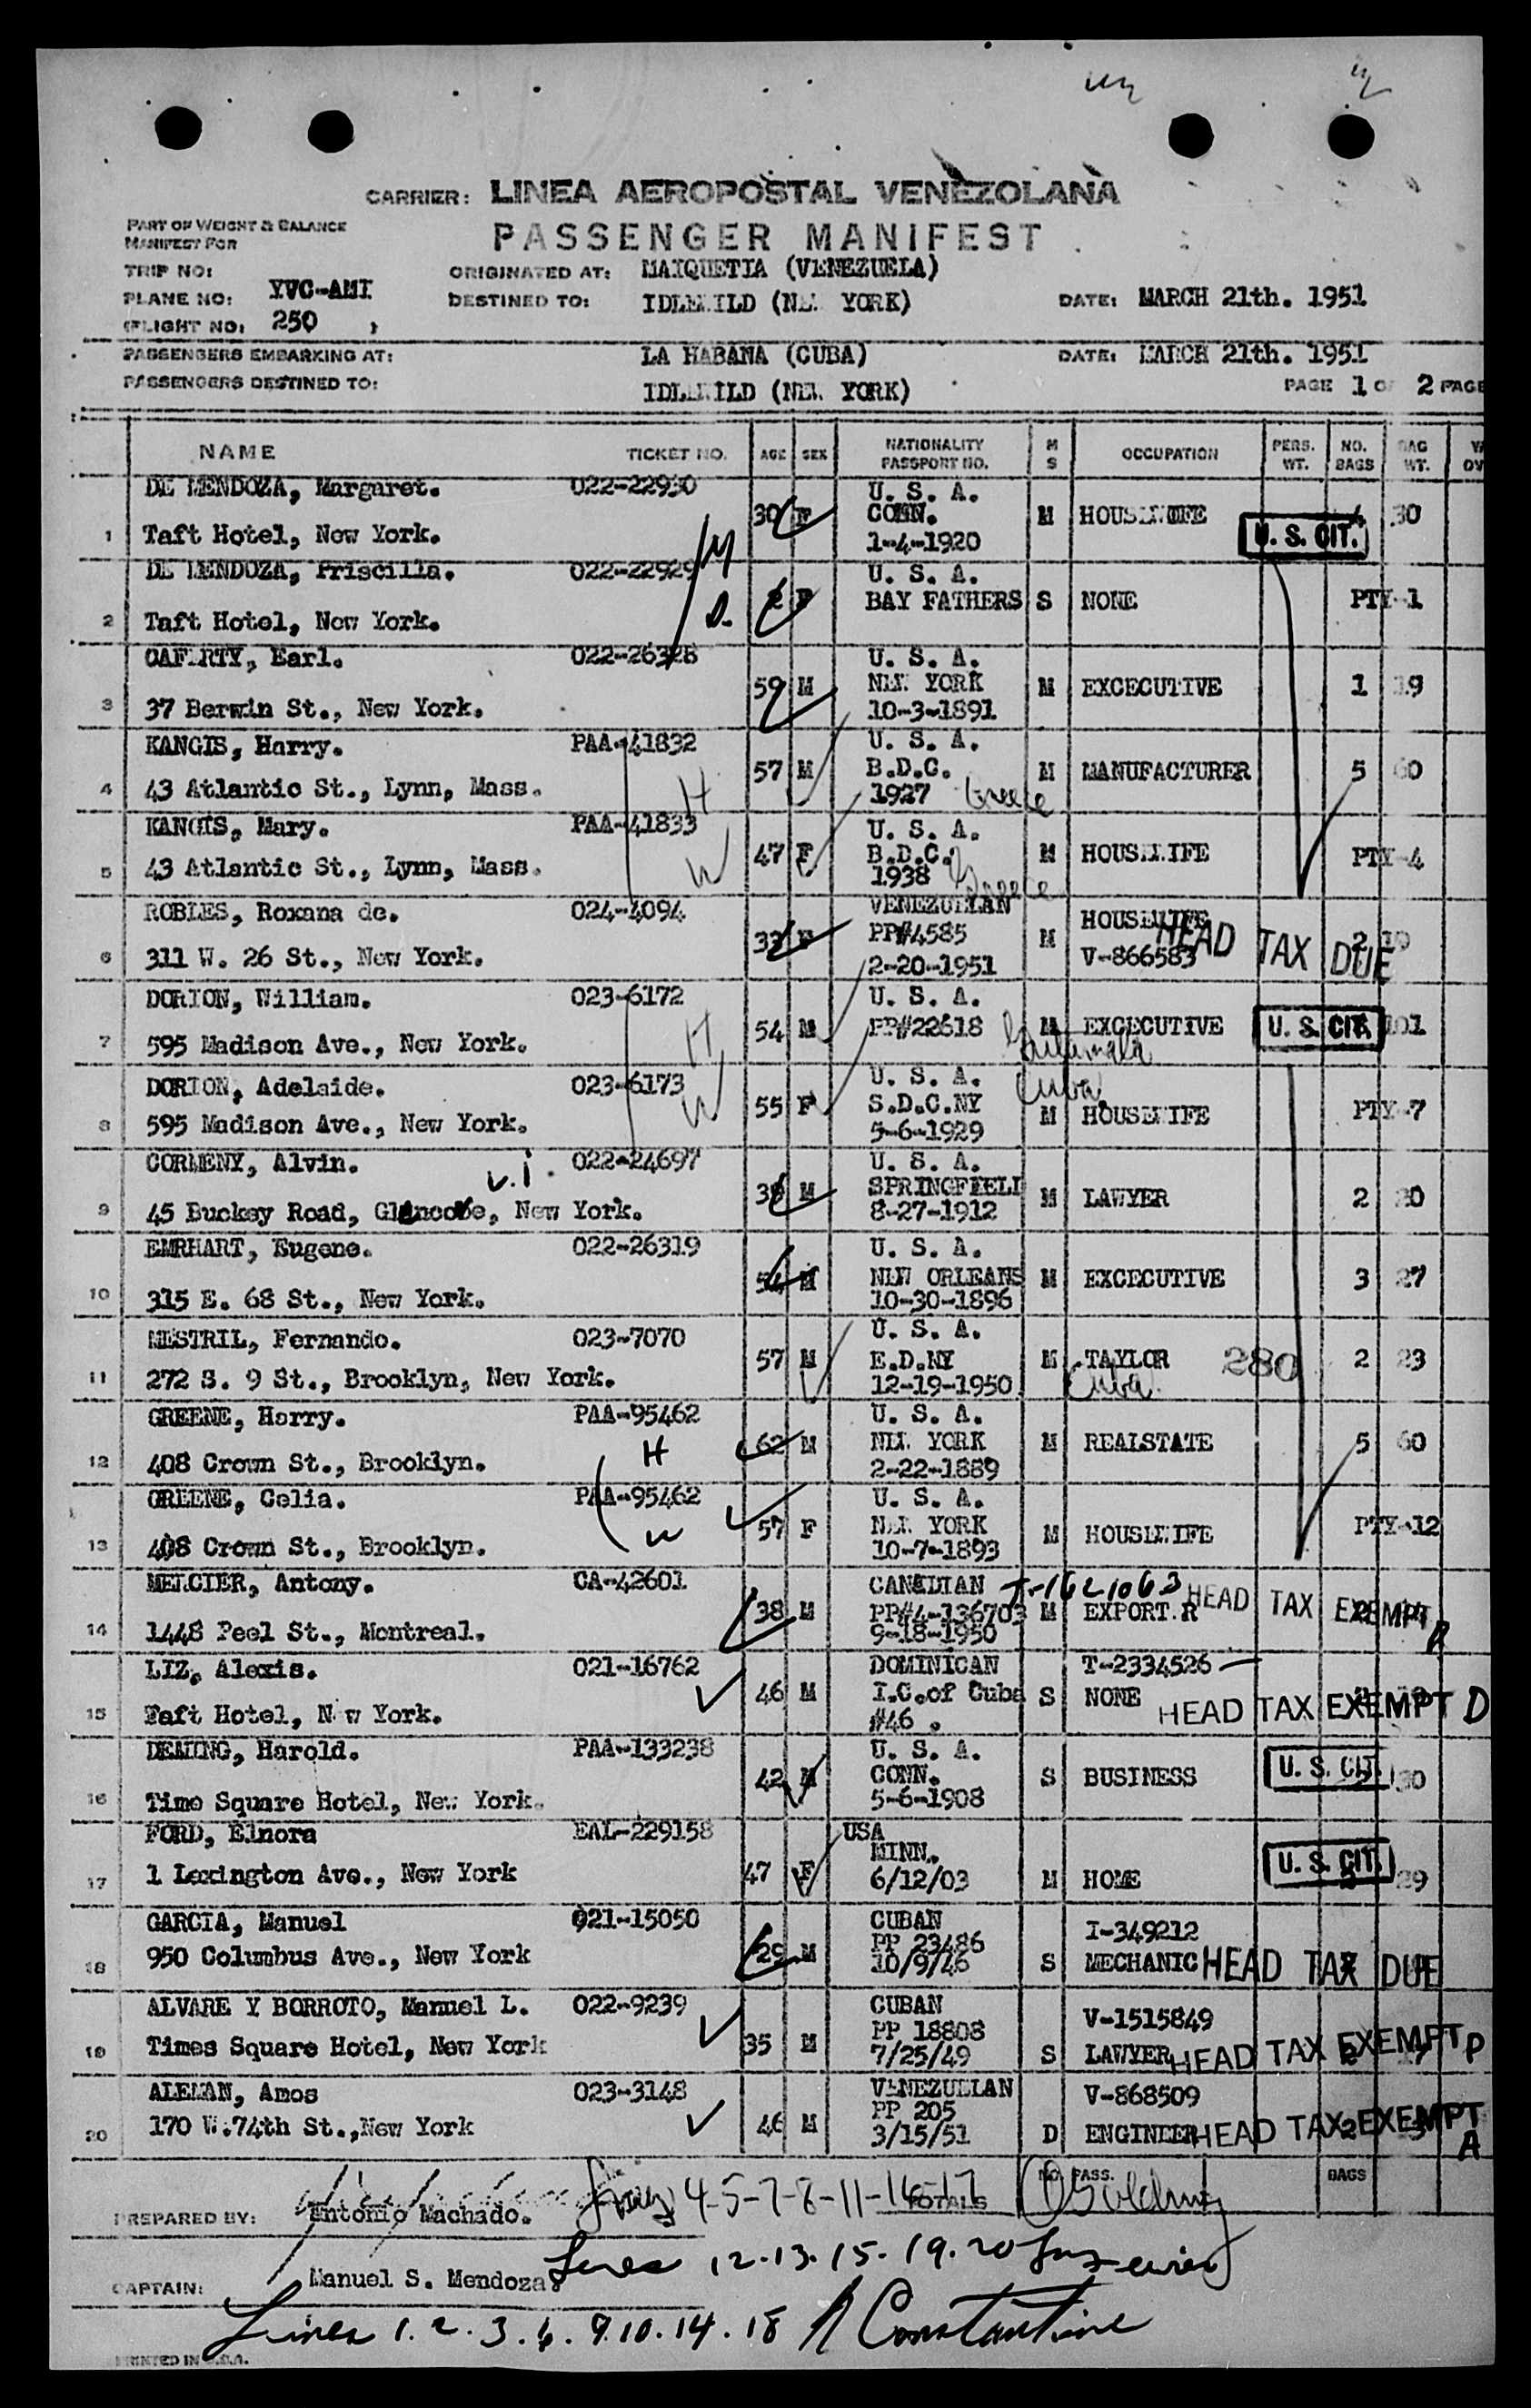 CARRIER: LINEA AEROPOSTAL VENEZOLANA
PART OF WEIGHT & BALANCE
MANIFEST FOR
PASSENGER MANIFEST
TRIP NO:
ORIGINATED AT: MAIQUETIA (VENEZUELA)
PLANE NO: YVC-AMI
DESTINED TO: IDLEWILD (NEW YORK) DATE: MARCH 21th. 1951
(FLIGHT NO: 250 )
PASSENGERS EMBARKING AT: LA HABANA (CUBA) DATE: MARCH 21th. 1951
PASSENGERS DESTINED TO: IDLEWILD (NEW YORK) PAGE 1 OF 2 PAGE
NAME TICKET NO. AGE SEX NATIONALITY PASSPORT NO. M S OCCUPATION PERS. WT. NO. BAGS BAG WT.
DE MENDOZA, Margaret. 022-22930 U. S. A.
30 F CONN. M HOUSEWIFE 4 30
1 Taft Hotel, New York. 1-4-1920 U. S. CIT.
DE MENDOZA, Priscilla. 022-22929 M U. S. A.
2 F BAY FATHERS S NONE PTY-1
2 Taft Hotel, New York. D.
CAFERTY, Earl. 022-26328 U. S. A.
59 M NEW YORK M EXCECUTIVE 1 19
3 37 Berwin St., New York. 10-3-1891
KANGIS, Harry. PAA-41832 U. S. A.
57 M B.D.C. M MANUFACTURER 5 60
4 43 Atlantic St., Lynn, Mass. H 1927 Greece
KANGIS, Mary. PAA-41833 U. S. A.
47 F B.D.C. M HOUSEWIFE PTY-4
5 43 Atlantic St., Lynn, Mass. W 1938 Greece
ROBLES, Roxana de. 024-4094 VENEZUELAN HOUSEWIFE
33 F PP#4585 M HEAD TAX DUE 2
6 311 W. 26 St., New York. 2-20-1951 V-866583
DORION, William. 023-6172 U. S. A.
54 M PP#22618 M EXCECUTIVE U. S. CIT. 101
7 595 Madison Ave., New York. H Guatemala
DORION, Adelaide. 023-6173 U. S. A. Cuba
55 F S.D.C.NY M HOUSEWIFE PTY-7
8 595 Madison Ave., New York. W 5-6-1929
CORMENY, Alvin. v.i. 022-24697 U. S. A.
38 M SPRINGFIELD M LAWYER 2 20
9 45 Buckey Road, Glencove, New York. 8-27-1912
EMRHART, Eugene. 022-26319 U. S. A.
54 M NEW ORLEANS M EXCECUTIVE 3 27
10 315 E. 68 St., New York. 10-30-1896
MESTRIL, Fernando. 023-7070 U. S. A.
57 M E.D.NY M TAYLOR 280 2 23
11 272 S. 9 St., Brooklyn, New York. 12-19-1950 Cuba
GREENE, Harry. PAA-95462 U. S. A.
H 62 M NEW YORK M REALSTATE 5 60
12 408 Crown St., Brooklyn. 2-22-1889
GREENE, Celia. PAA-95462 U. S. A.
57 F NEW YORK M HOUSEWIFE PTY-12
13 408 Crown St., Brooklyn. W 10-7-1893
MERCIER, Antony. CA-42601 CANADIAN T-1621063
38 M PP#4-136703 M EXPORT.R HEAD TAX EXEMPT
14 1448 Peel St., Montreal. 9-18-1950 A
LIZ, Alexis. 021-16762 DOMINICAN T-2334526
46 M I.C.of Cuba S NONE HEAD TAX EXEMPT D
15 Taft Hotel, New York. #46 .
DEMING, Harold. PAA-133238 U. S. A.
42 M CONN. S BUSINESS U. S. CIT. 30
16 Time Square Hotel, New York. 5-6-1908
FORD, Elnora EAL-229158 USA
MINN. U. S. CIT.
17 1 Lexington Ave., New York 47 F 6/12/03 M HOME 29
GARCIA, Manuel 021-15050 CUBAN I-349212
29 M PP 23486
18 950 Columbus Ave., New York 10/9/46 S MECHANIC HEAD TAX DUE
ALVARE Y BORROTO, Manuel L. 022-9239 CUBAN V-1515849
35 M PP 18808
19 Times Square Hotel, New York 7/25/49 S LAWYER HEAD TAX EXEMPT P
ALEMAN, Amos 023-3148 VENEZUELAN V-868509
46 M PP 205
20 170 W.74th St.,New York 3/15/51 D ENGINEER HEAD TAX EXEMPT 2
A
4-5-7-8-11-16-17 TOTALS NO. PASS. BAGS
PREPARED BY: Antonio Machado.
Lines 12.13.15.19.20
CAPTAIN: Manuel S. Mendoza
Lines 1.2.3.6.9.10.14.18 A Constantine
PRINTED IN U.S.A.